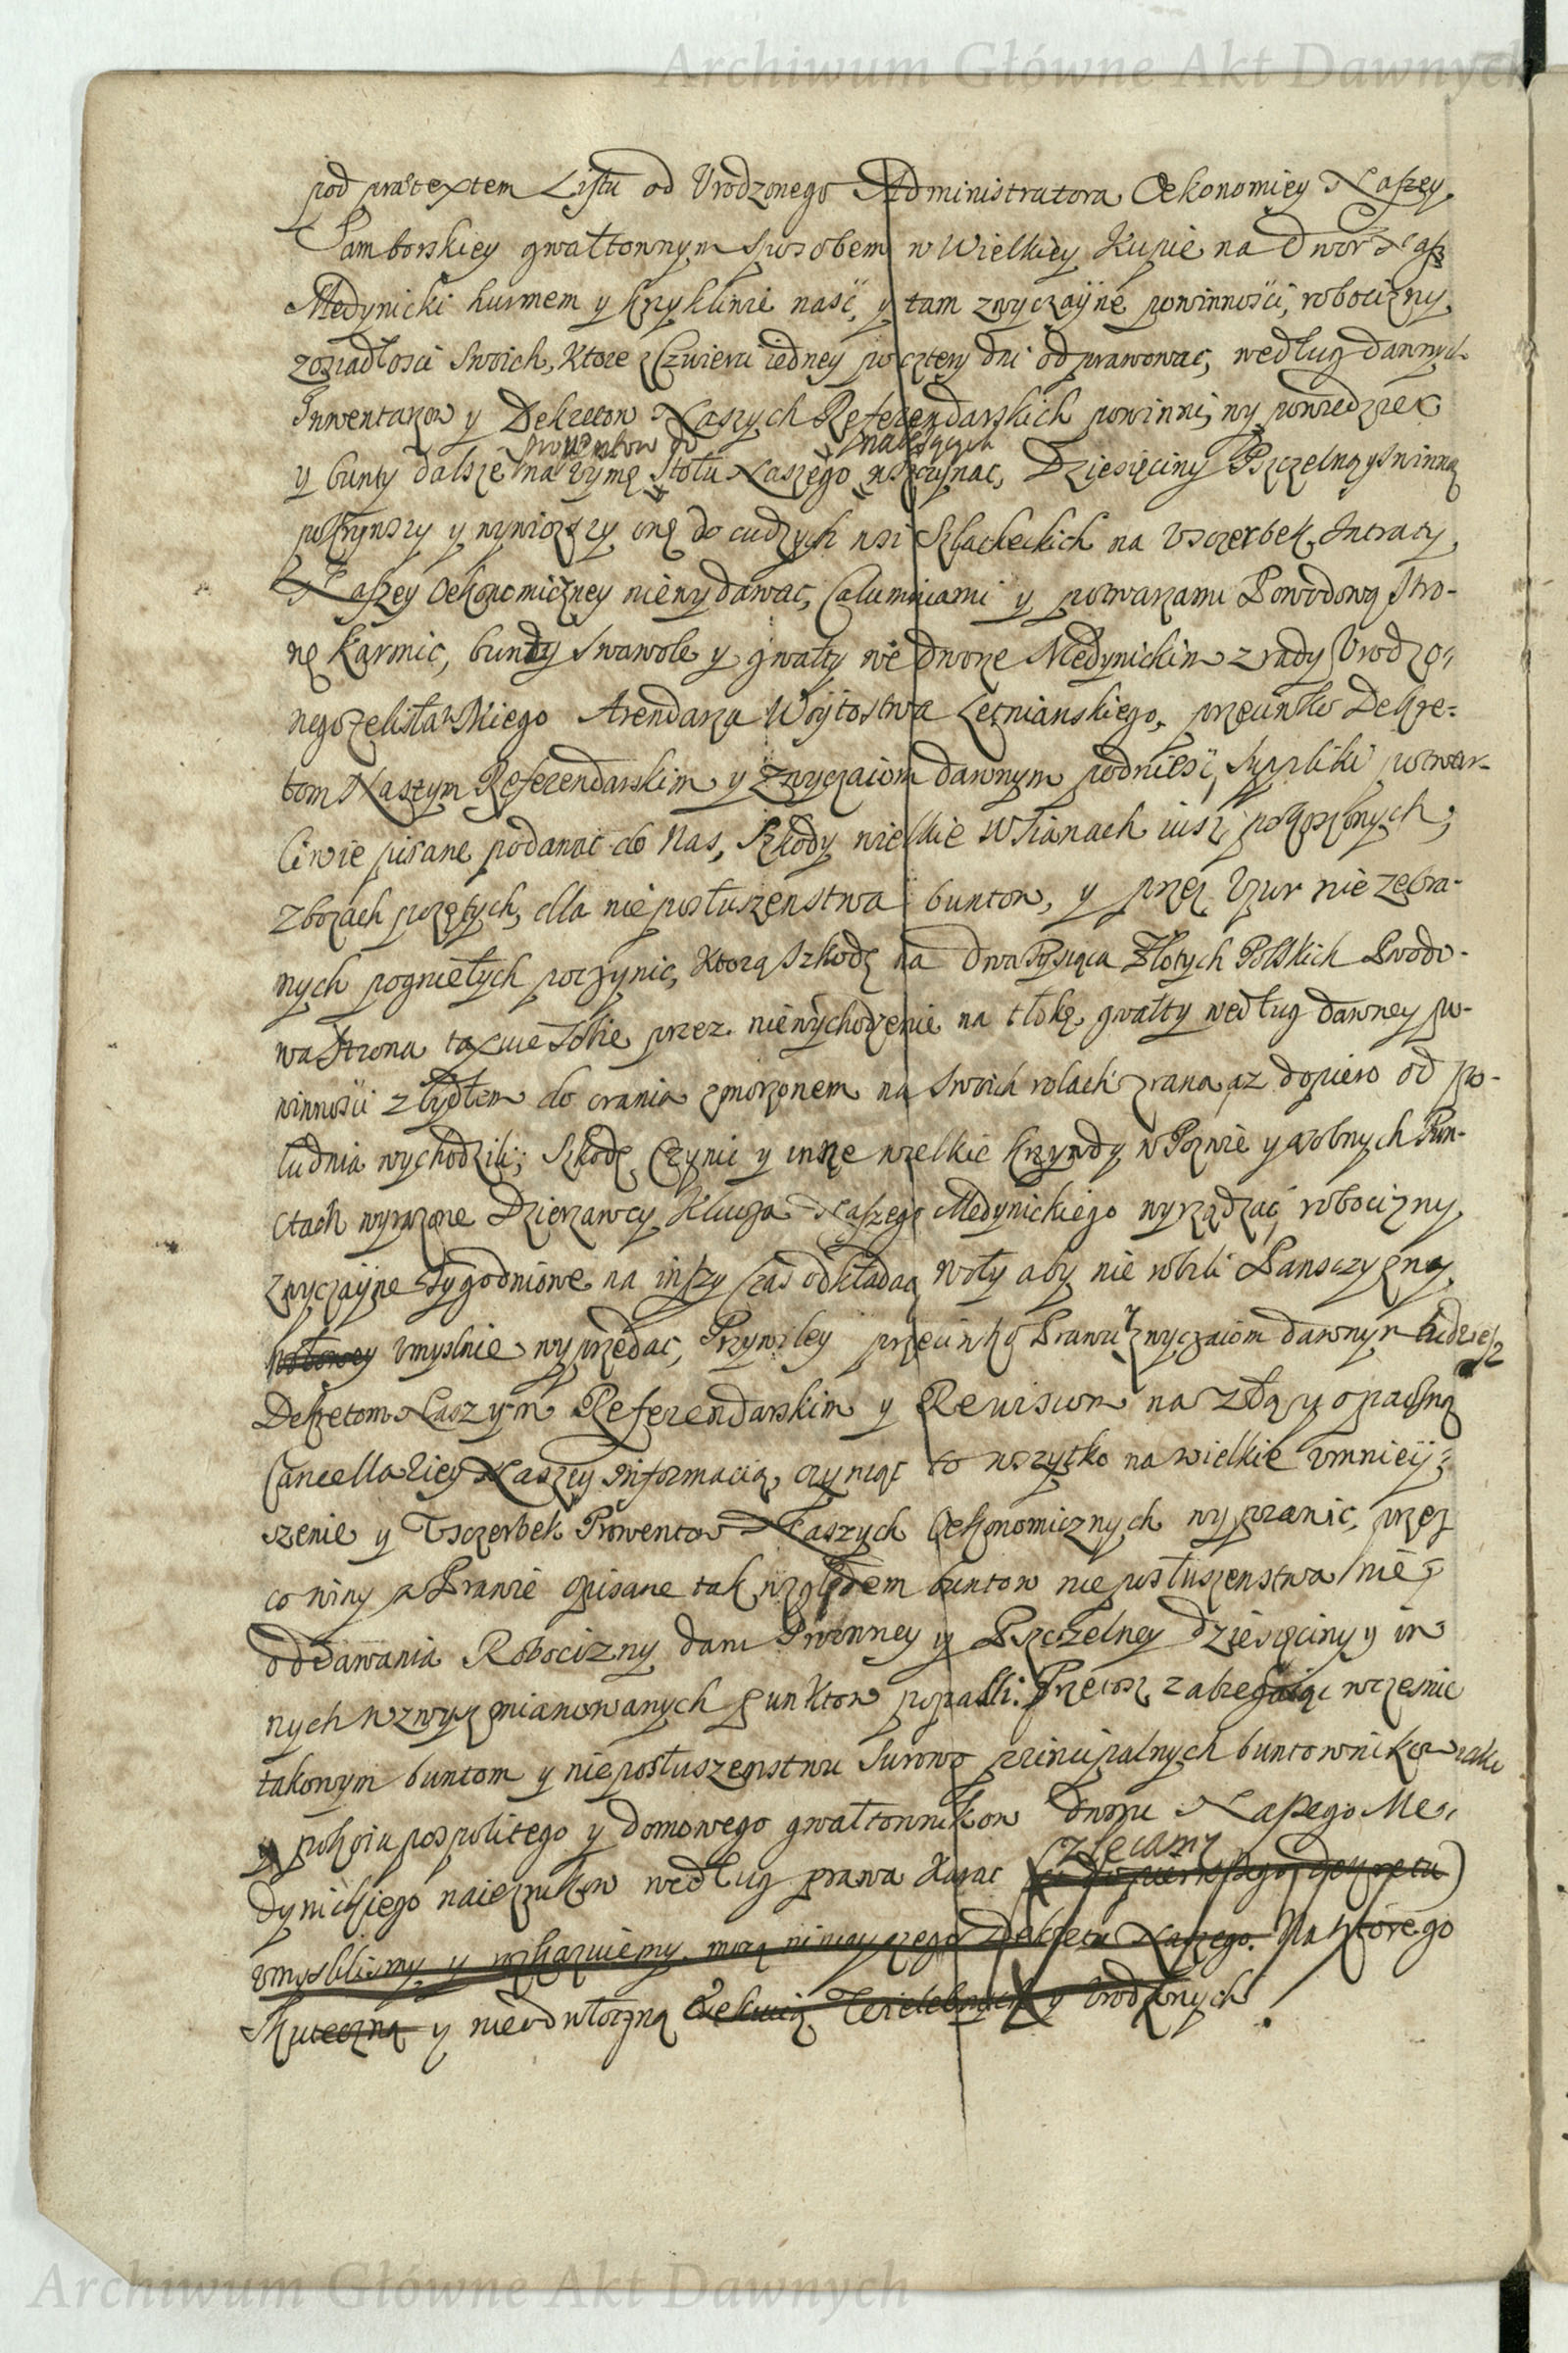 Archiwum Główne Akt Dawnych
pod praetextem Listu od Urodzonego Administratora Oekonomiey Naszey
Samborskiey gwałtownym sposobem w Wielkiey Kupie na Dwor Nasz
Medynicki hurmem y krzykliwie naść, y tam zwyczayne powinności, robocizny,
z osiadłości swoich, ktore z Czwierci iedney po cztery dni odprawować, według dawnych
Inwentarzow y Dekretow Naszych Referendarskich powinni, wypowiedziec
prowentow do należących
y bunty dalsze na uymę Stołu Naszego wszczynać, Dziesięciny Pszczelną y Swinną
pokrywszy y wyniozszy onę do cudzych wsi Szlacheckich na Uszczerbek Intraty
Naszey Oekonomiczney niewydawać, Calumniami y potwarzami Powodową Stro-
nę karmić, bunty swawole y gwałty we dworze Medynickim z rady Urodzo-
nego Arendarza Woytostwa Letnianskiego, przeciwko Dekre-
tom Naszym Referendarskim y Zwyczaiom dawnym podnieść, Supliki potwar-
liwie pisane podawać do Nas, Szkody wielkie w Sianach iusz pokoszonych,
Zbożach pożętych, dla nieposłuszenstwa buntow, y przez Upur nie zebra-
nych pogniełych poczynić, ktorą Szkodę na dwa Tysiąca Złotych Polskich Powodo-
wa Strona taxuie sobie przez niewychodzenie na tłokę, gwałty według dawney po-
winności z bydłem do orania zmorzonem na swoich rolach zrana, az dopiero od po-
łudnia wychodzili, Szkodę Czynić y insze wielkie krzywdy w Pozwie y osobnych Pun-
ctach wyrazone Dzierzawcy Klucza Naszego Medynickiego wyrządzać, robocizny
zwyczayne Tygodniowe na inszy czas odkładać, woły aby nie robili Panszczyzny
umyslnie wyprzedać, Przywiley przeciwko Prawu y zwyczaiom dawnym tudziesz
Dekretom Naszym Referendarskim y Rewisiom na złą y opaczną
Cancellariey Naszey informacią, czyniąc to wszytko na wielkie umniey-
szenie y Uszczerbek Prowentow Naszych Oekonomicznych wyprawić, przez
co winy w Prawie opisane tak względem buntow nieposłuszenstwa nie
oddawania Robocizny dani Swinney y Pszczelney dziesięciny y in
nych wzwysz mianowanych punktow popadli. Przetosz zabiegaiąc wczesnie
takowym buntom y nieposłuszenstwu surowo principalnych buntownikow
y pokoiu pospolitego y domowego gwałtownikow dworu Naszego Me-
zlecamy
dynickiego naieznikow według prawa karać
umyslilismy y rozkazuiemy mocą ninieyszego Dekretu Naszego. Na ktorego
Skuteczną y nieodwłoczną Exekucią Wielebnych y Urodzonych
Archiwum Główne Akt Dawnych